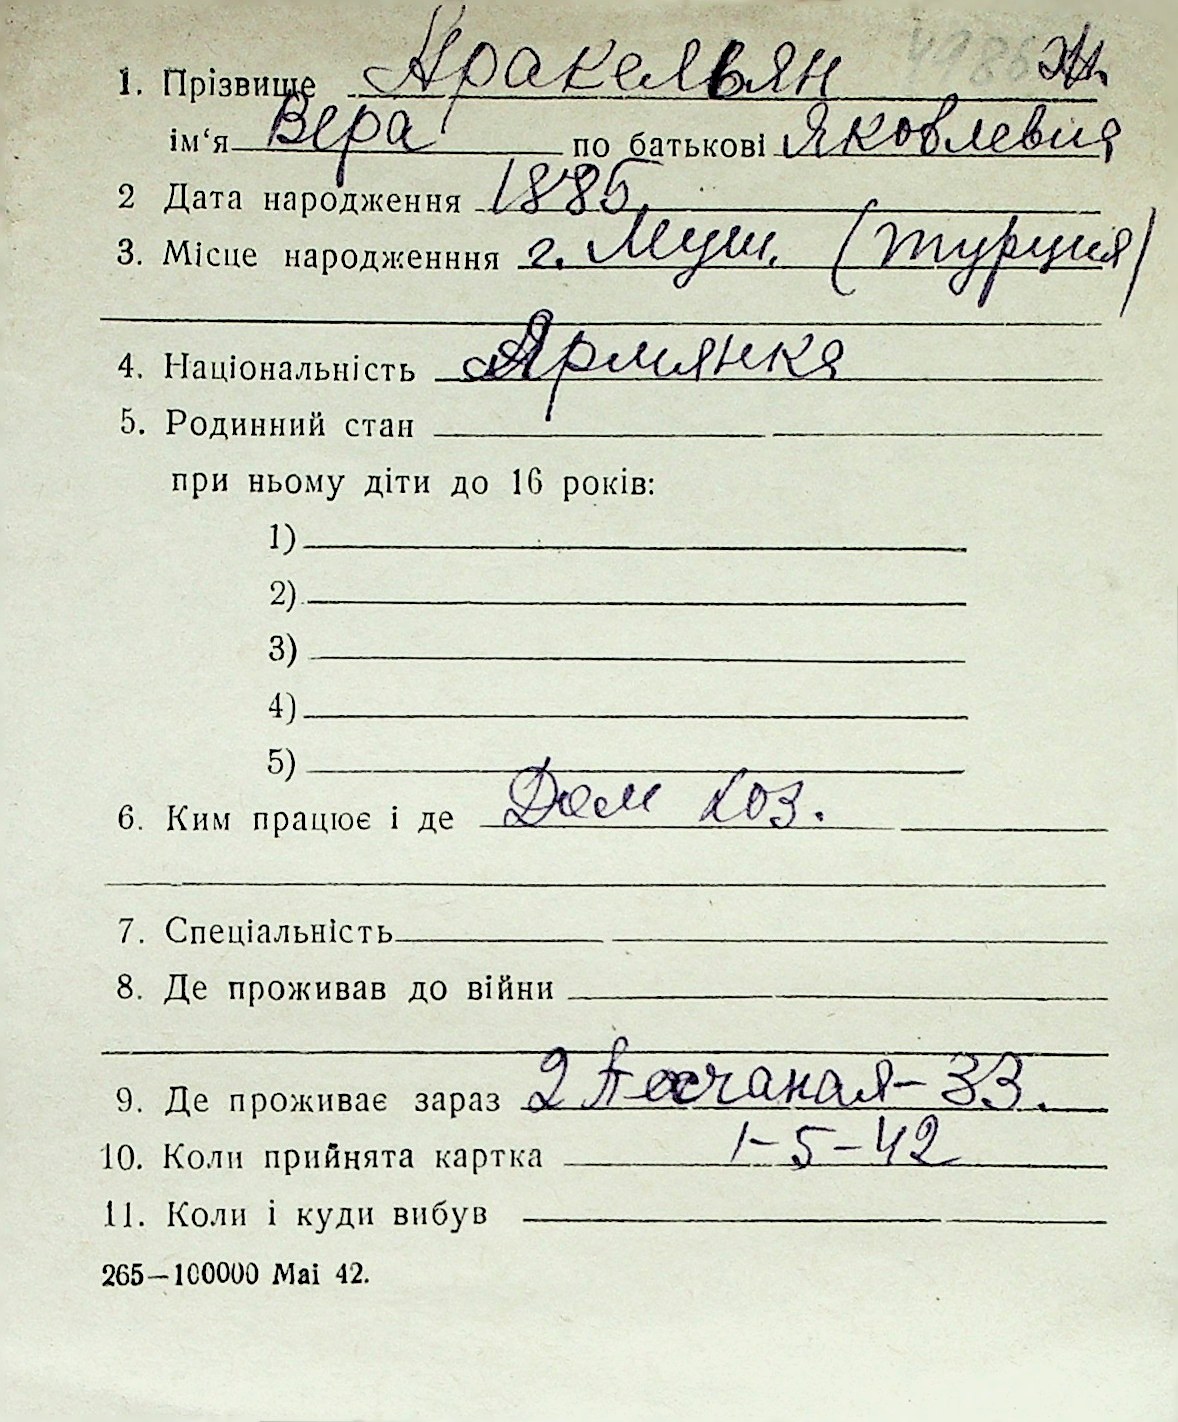 1. Прізвище Аракельян Ж.
ім‘я Вера по батькові Яковлевна
2 Дата народження 1885
3. Місце народженння г. Муш. (Турция)
4. Національність Армянка
5. Родинний стан
при ньому діти до 16 років:
1)
2)
3)
4)
5)
6. Ким працює і де Дом хоз.
7. Спеціальність
8. Де проживав до війни
9. Де проживає зараз 2 Песчаная-33.
10. Коли прийнята картка 1-5-42
11. Коли і куди вибув
265—100000 Mai 42.